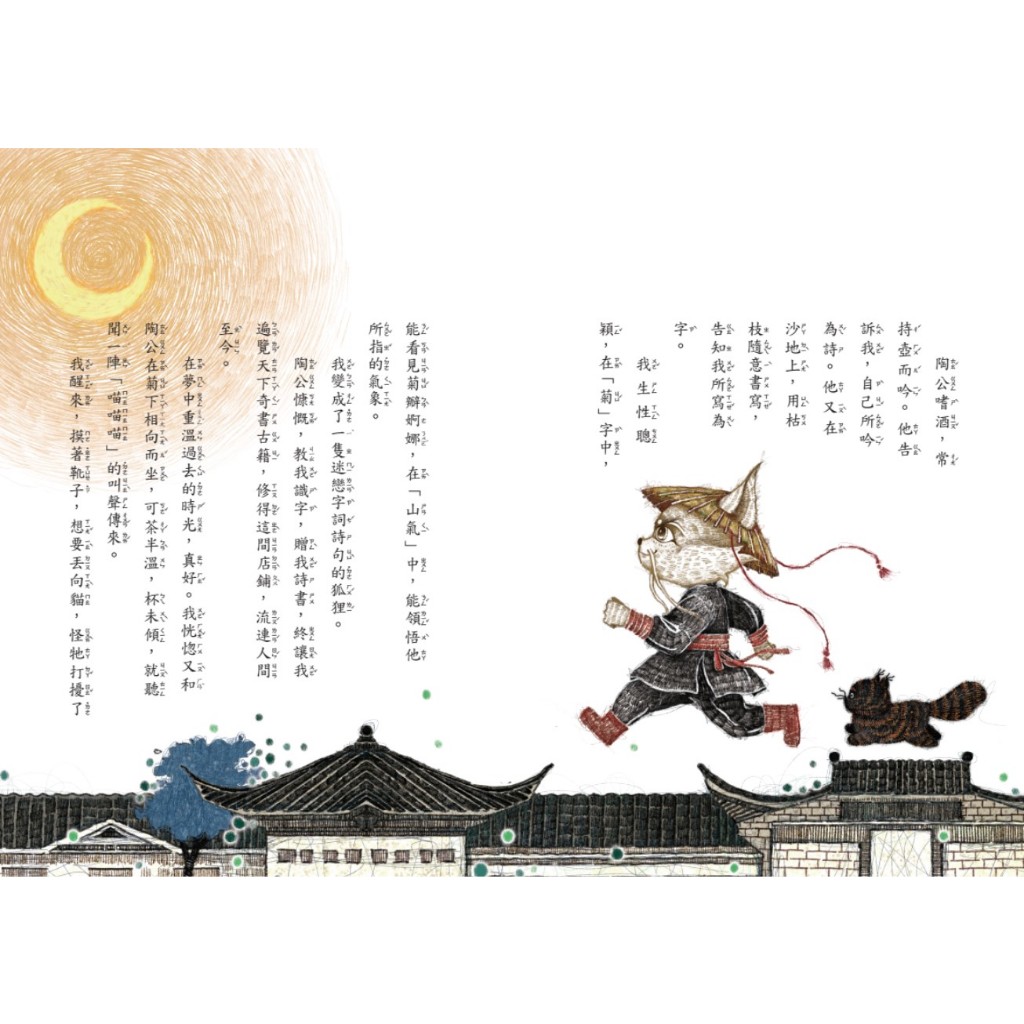 陶公嗜酒，常
持壺而吟。他告
訴我，自己所吟
為詩。他又在
沙地上，用枯
枝隨意書寫，
告知我所寫為
字。
我生性聰
穎，在「菊」字中，
能看見菊瓣婀娜，在「山氣」中，能領悟他
所指的氣象。
我變成了一隻迷戀字詞詩句的狐狸。
陶公慷慨，教我識字，贈我詩書，終讓我
遍覽天下奇書古籍，修得這間店鋪，流連人間
至今。
在夢中重溫過去的時光，真好。我恍惚又和
陶公在菊下相向而坐，可茶半溫，杯未傾，就聽
聞一陣「喵喵喵」的叫聲傳來。
我醒來，摸著靴子，想要丟向貓，怪牠打擾了